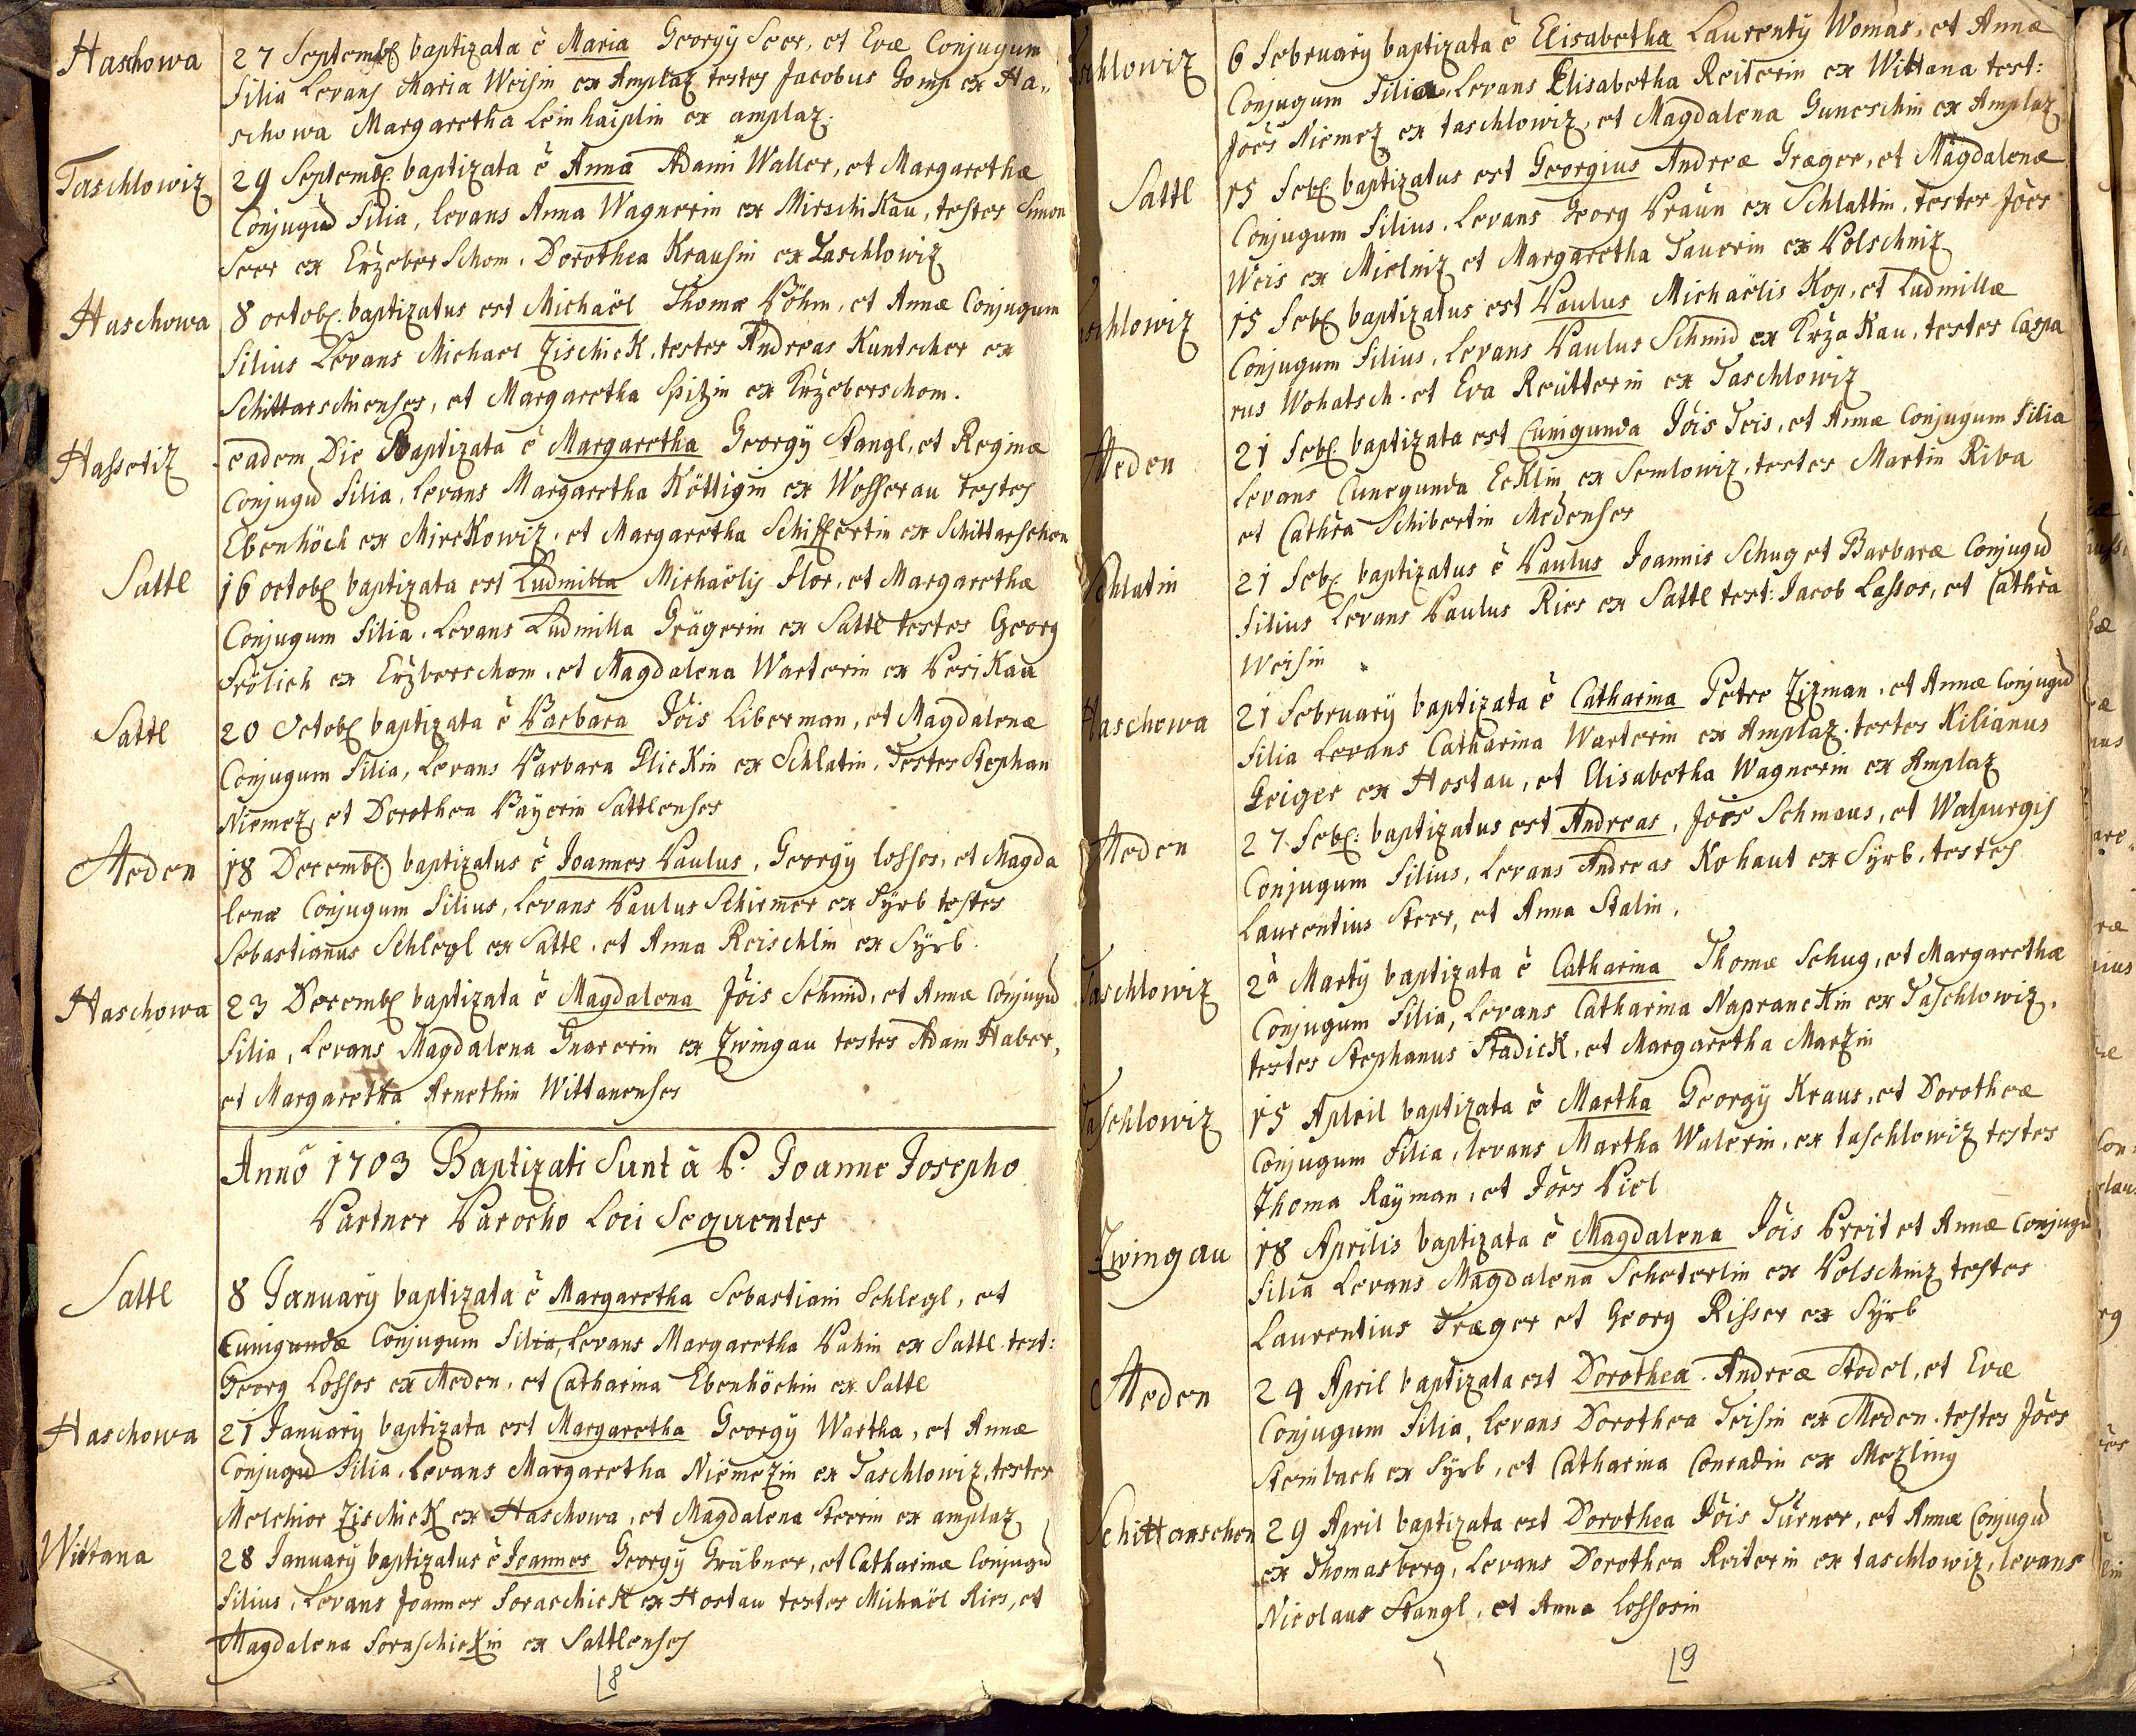 Haschowa
27 Septemb[ baptizata ē Maria Georgÿ Seer, et Evæ Conjugum
filia Levans Maria Weisin ex Amplaz testes Jacobus Gomp ex Ha„
schowa Margaretha Leinhäiplin ex amplaz.
Taschlowiz
29 Septemb. baptizata ē Anna Adami Waller, et Margarethæ
Conjugū filia, levans Anna Wagnerin ex MirschiKau, testes Simon
Seer ex Erzeberschom. Dorothea Krausin ex Taschlowiz
Haschowa
8 octob. baptizatus est Michaël Thomæ Böhm, et Annæ Conjugum
filius Levans Michael ZischicK, testes Andreas Kuntscher ex
Schittarschienses, et Margaretha Spizin ex Krzeberschom.
Hassetiz
eadem Die Baptizata ē Margaretha Georgÿ Stangl, et Reginæ
Conjugū filia, Levans Margaretha Köttigin ex Wosserau testes
Ebenhöch ex MireKowiz, et Margaretha Schiffertin ex Schittarschen
Sattl
16 octob baptizata est Ludmilla Michaëlis Flor, et Margarethæ
Conjugum filia. Levans Ludmilla Grägerin ex Sattl testes Georg
Frölich ex Erzberschom, et Magdalena Warterin ex PesiKau
Sattl
20 Octob baptizata ē Barbara Jōis Liberman, et Magdalenæ
Conjugum filia, Levans Barbara PlicKin ex Schlatin. Testes Stephan
Niemez, et Dorothea Baÿerin Sattlenses
Meden
18 Decemb baptizatus ē Joannes Paulus, Georgÿ losses, et Magda
lenæ Conjugum filius, Levans Paulus Schirmer ex Sÿrb testes
Sebastianus Schlegl ex Sattl. et Anna Reischlin ex Sÿrb.
Haschowa
23 Decemb baptizata ē Magdalena Jōis Schmid, et Annæ Conjugū
filia, Levans Magdalena Gnarerin ex Zwingau testes Adam Haber,
et Margaretha Arnethin Wittanenses
Annō 1703 Baptizati Sunt à P. Joanne Josepho
Partner Parocho Loci Sequentes
Sattl
8 Januarÿ baptizata ē Margaretha Sebastiani Schlegl, et
Cunigundæ Conjugum filia, Levans Margaretha Pahin ex Sattl. test:
Georg Losses ex Meden, et Catharina Ebenhöchin ex Sattl
Haschowa
21 Januarÿ baptizata est Margaretha Georgÿ Wartha, et Annæ
Conjugū filia. Levans Margaretha Niemezin ex Taschlowiz, testes
Melchior ZischicK ex Haschowa, et Magdalena Steerin ex amplaz
Wittana
28 Januarÿ baptizatus ē Joannes Georgÿ Grübner, et Catharinæ Conjugū
filius, Levans Joannes ForaschicK ex Hostau testes Michaël Ries, et
Magdalena ForaschicKin ex Sattlenses
8
schlowiz
6 Februarÿ baptizata ē Elisabetha Laurentÿ Womas, et Annæ
Conjugum Filia, Levans Elisabetha Reiterin ex Wittana test:
Jōes Niemez ex taschlowiz, et Magdalena Guneschin ex Amplaz
Sattl
15 Feb baptizatus est Georgius Andreæ Græger, et Magdalenæ
Conjugum filius. Levans Georg Praun ex Schlattin, testes Jōes
Weis ex Mielniz et Margaretha Tauerin ex Polschniz
schlowiz
15 Feb baptizatus est Paulus Michaëlis Kop, et Ludmillæ
Conjugum filius, Levans Paulus Schmid ex KrzaKau, testes Caspa
rus Wohatsch. et Eva Reütterin ex Taschlowiz
Meden
21 Feb baptizata est Cunigunda Jōis Teis, et Annæ Conjugum filia
Levans Cunegunda EcKlin ex Semlowiz, testes Martin Riba
et Cathra Schibertin Medenses
Schlatin
21 Feb. baptizatus ē Paulus Joannis Schug et Barbaræ Conjugū
filius Levans Paulus Ries ex Sattl test: Jacob Lasses, et Cathra
Weisin
Haschowa
21 Februarÿ baptizata ē Catharina Petre Zizman, et Annæ Conjugū
filia Levans Catharina Warterin ex Amplaz. testes Kilianus
Geiger ex Hostau, et Elisabetha Wagnerin ex Amplaz
Meden
27. Feb: baptizatus est Andreas, Jōes Schmaus, et Walpurgis
Conjugum filius, Levans Andreas Kohaut ex Sÿrb, testes
Laurentius Steer, et Anna Stalin.
Taschlowiz
2à Martÿ baptizata ē Catharina Thomæ Schug, et Margarethæ
Conjugum filia, Levans Catharina NaprancKin ex Taschlowiz.
testes Stephanus StadicK, et Margaretha Marzin
Taschlowiz
15 Apleil baptizata ē Martha Georgÿ Kraus, et Dorotheæ
Conjugum filia, levans Martha Walerin, ex taschlowiz testes
Thoma Raÿman, et Jōes Piel
Zwingau
18 Aprilis baptizata ē Magdalena Jōis Preit et Annæ Conjugū
filia Levans Magdalena Scheterlin ex Polschniz testes
Laurentius Træger et Georg Risser ex Sÿrb
Meden
24 April baptizata est Dorothea. Andreæ Stedel, et Evæ
Conjugum filia, Levans Dorothea Teisin ex Meden. testes Jōes
Steinbach ex Sÿrb, et Catharina Conradin ex Mezling
Schittarschen
29 April baptizata est Dorothea Jōis Türner, et Annæ Conjugū
ex Thomasberg, Levans Dorothea Reiterin ex taschlowiz, levans
Nicolaus Stangl, et Anna Lossesin
9